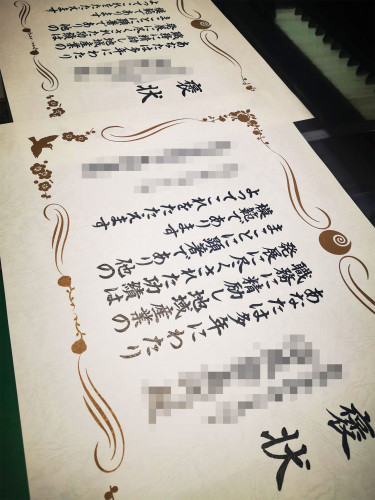 褒状
あなたは多年にわたり
職務に精励し地域産業の
発展に尽くされた功績は
まことに顕著であり他の
模範であります
よってこれをたたえます
褒状
あなたは多年にわたり
職務に精励し地域産業の
発展に尽くされた功績は
まことに顕著であり他の
模範であります
よってこれをたたえます